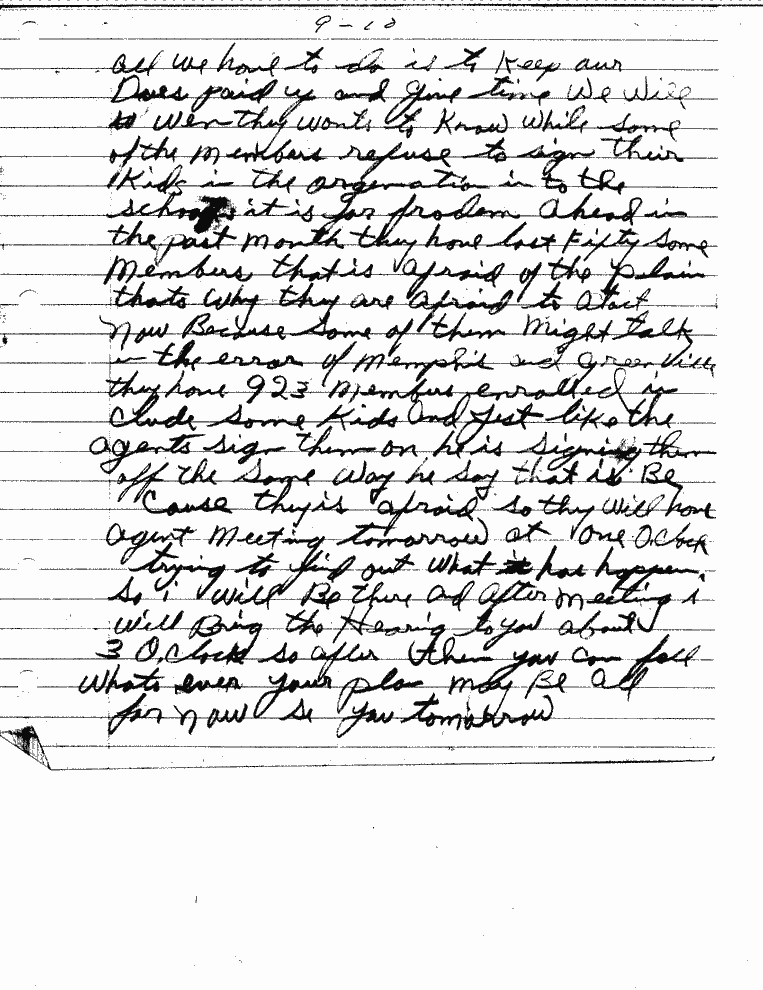 9-10
all we have to do is to Keep our
Dues paid up and give time We Will
Wen they wonts to Know While some
of the Members refuse to sign their
Kids in the orgenation in to the
schools it is for prodem Ahead in
the past Month they have lost Fifty Some
Members that is afraid of the plain
thats Why they are afraid to
Now Because Some of them Might talk
in the error of Memphis and Greenville
they have 923 Members enrolled in
Clude Some Kids And Jest like the
agents sign them on he is signing them
off the Same Way he Say that is Be
Cause they is afraid so thy Will have
agent Meeting tomorrow at one O.Clock
trying to find out What has happen.
So i Will Be there and After Meeting i
Will Bring the Hearing to you about
3 O.Clock so after then you can
Whats ever your plan May Be All
for Now se you tomorrow